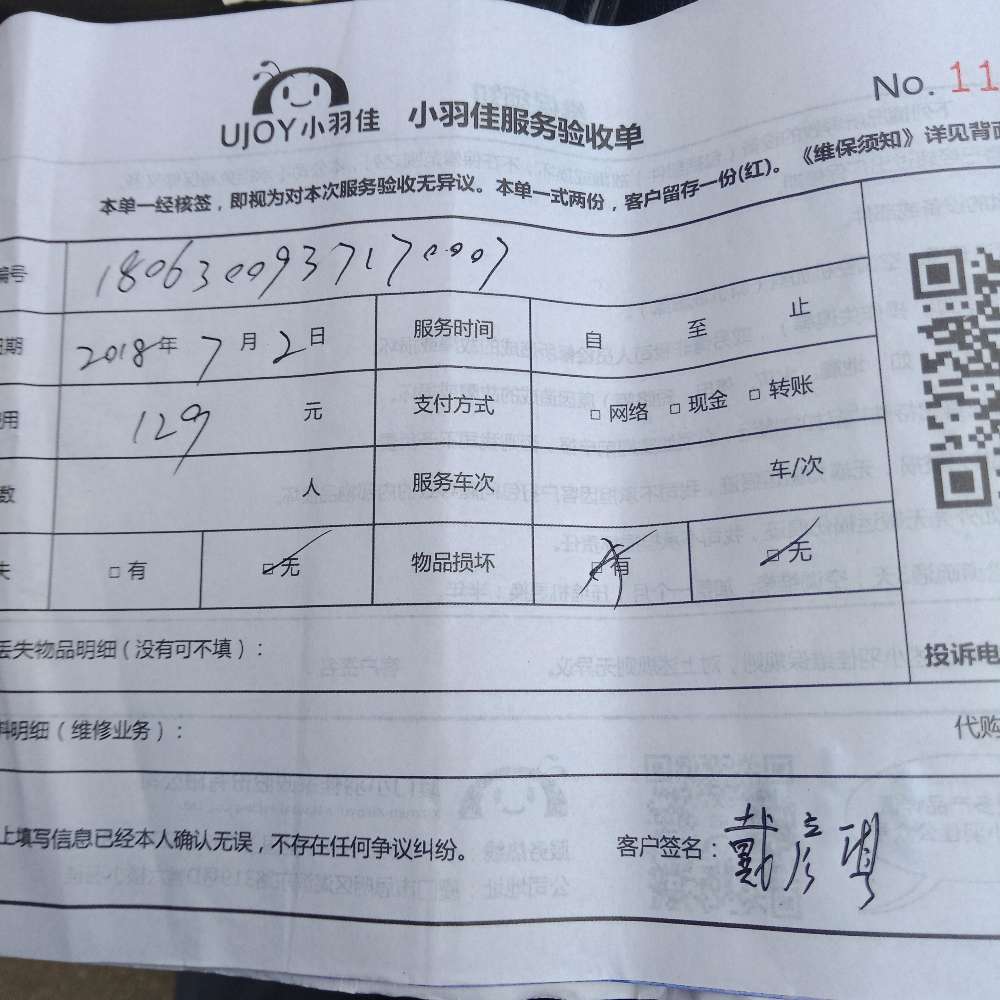 No. 11
UJOY小羽佳 小羽佳服务验收单
本单一经核签，即视为对本次服务验收无异议。本单一式两份，客户留存一份(红)。《维保须知》详见背面
编号 1806300937170007
日期 2018年 7月 2日 服务时间 自 至 止
费用 129 元 支付方式 □ 网络 □ 现金 □ 转账
人 服务车次 车/次
□ 有 □ 无 物品损坏 □ 有 □ 无
丢失物品明细（没有可不填）： 投诉电
料明细（维修业务）： 代购
上填写信息已经本人确认无误，不存在任何争议纠纷。 客户签名：戴彦